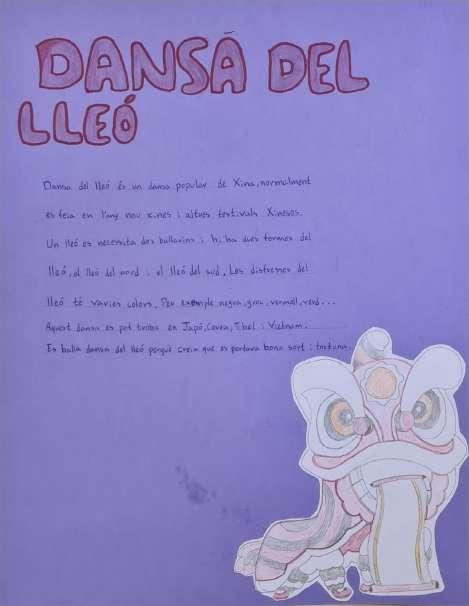 DANSÀ DEL
LLEÓ
Dansa del lleó és un dansa popular de Xina, normalment
es feia en l'any nou xines i altres festivals Xinesos.
Un lleó es necessita dos ballarins i hi ha dues formes del
lleó, el lleó del nord i el lleó del sud. Les disfresses del
lleó té varies colors. Per exemple negra, groc, vermell, verd...
Aquest dansa es pot troba en Japó, Corea, Tibel i Vietnam.
Es balla dansa del lleó perquè creia que es portava bona sort i fortuna.